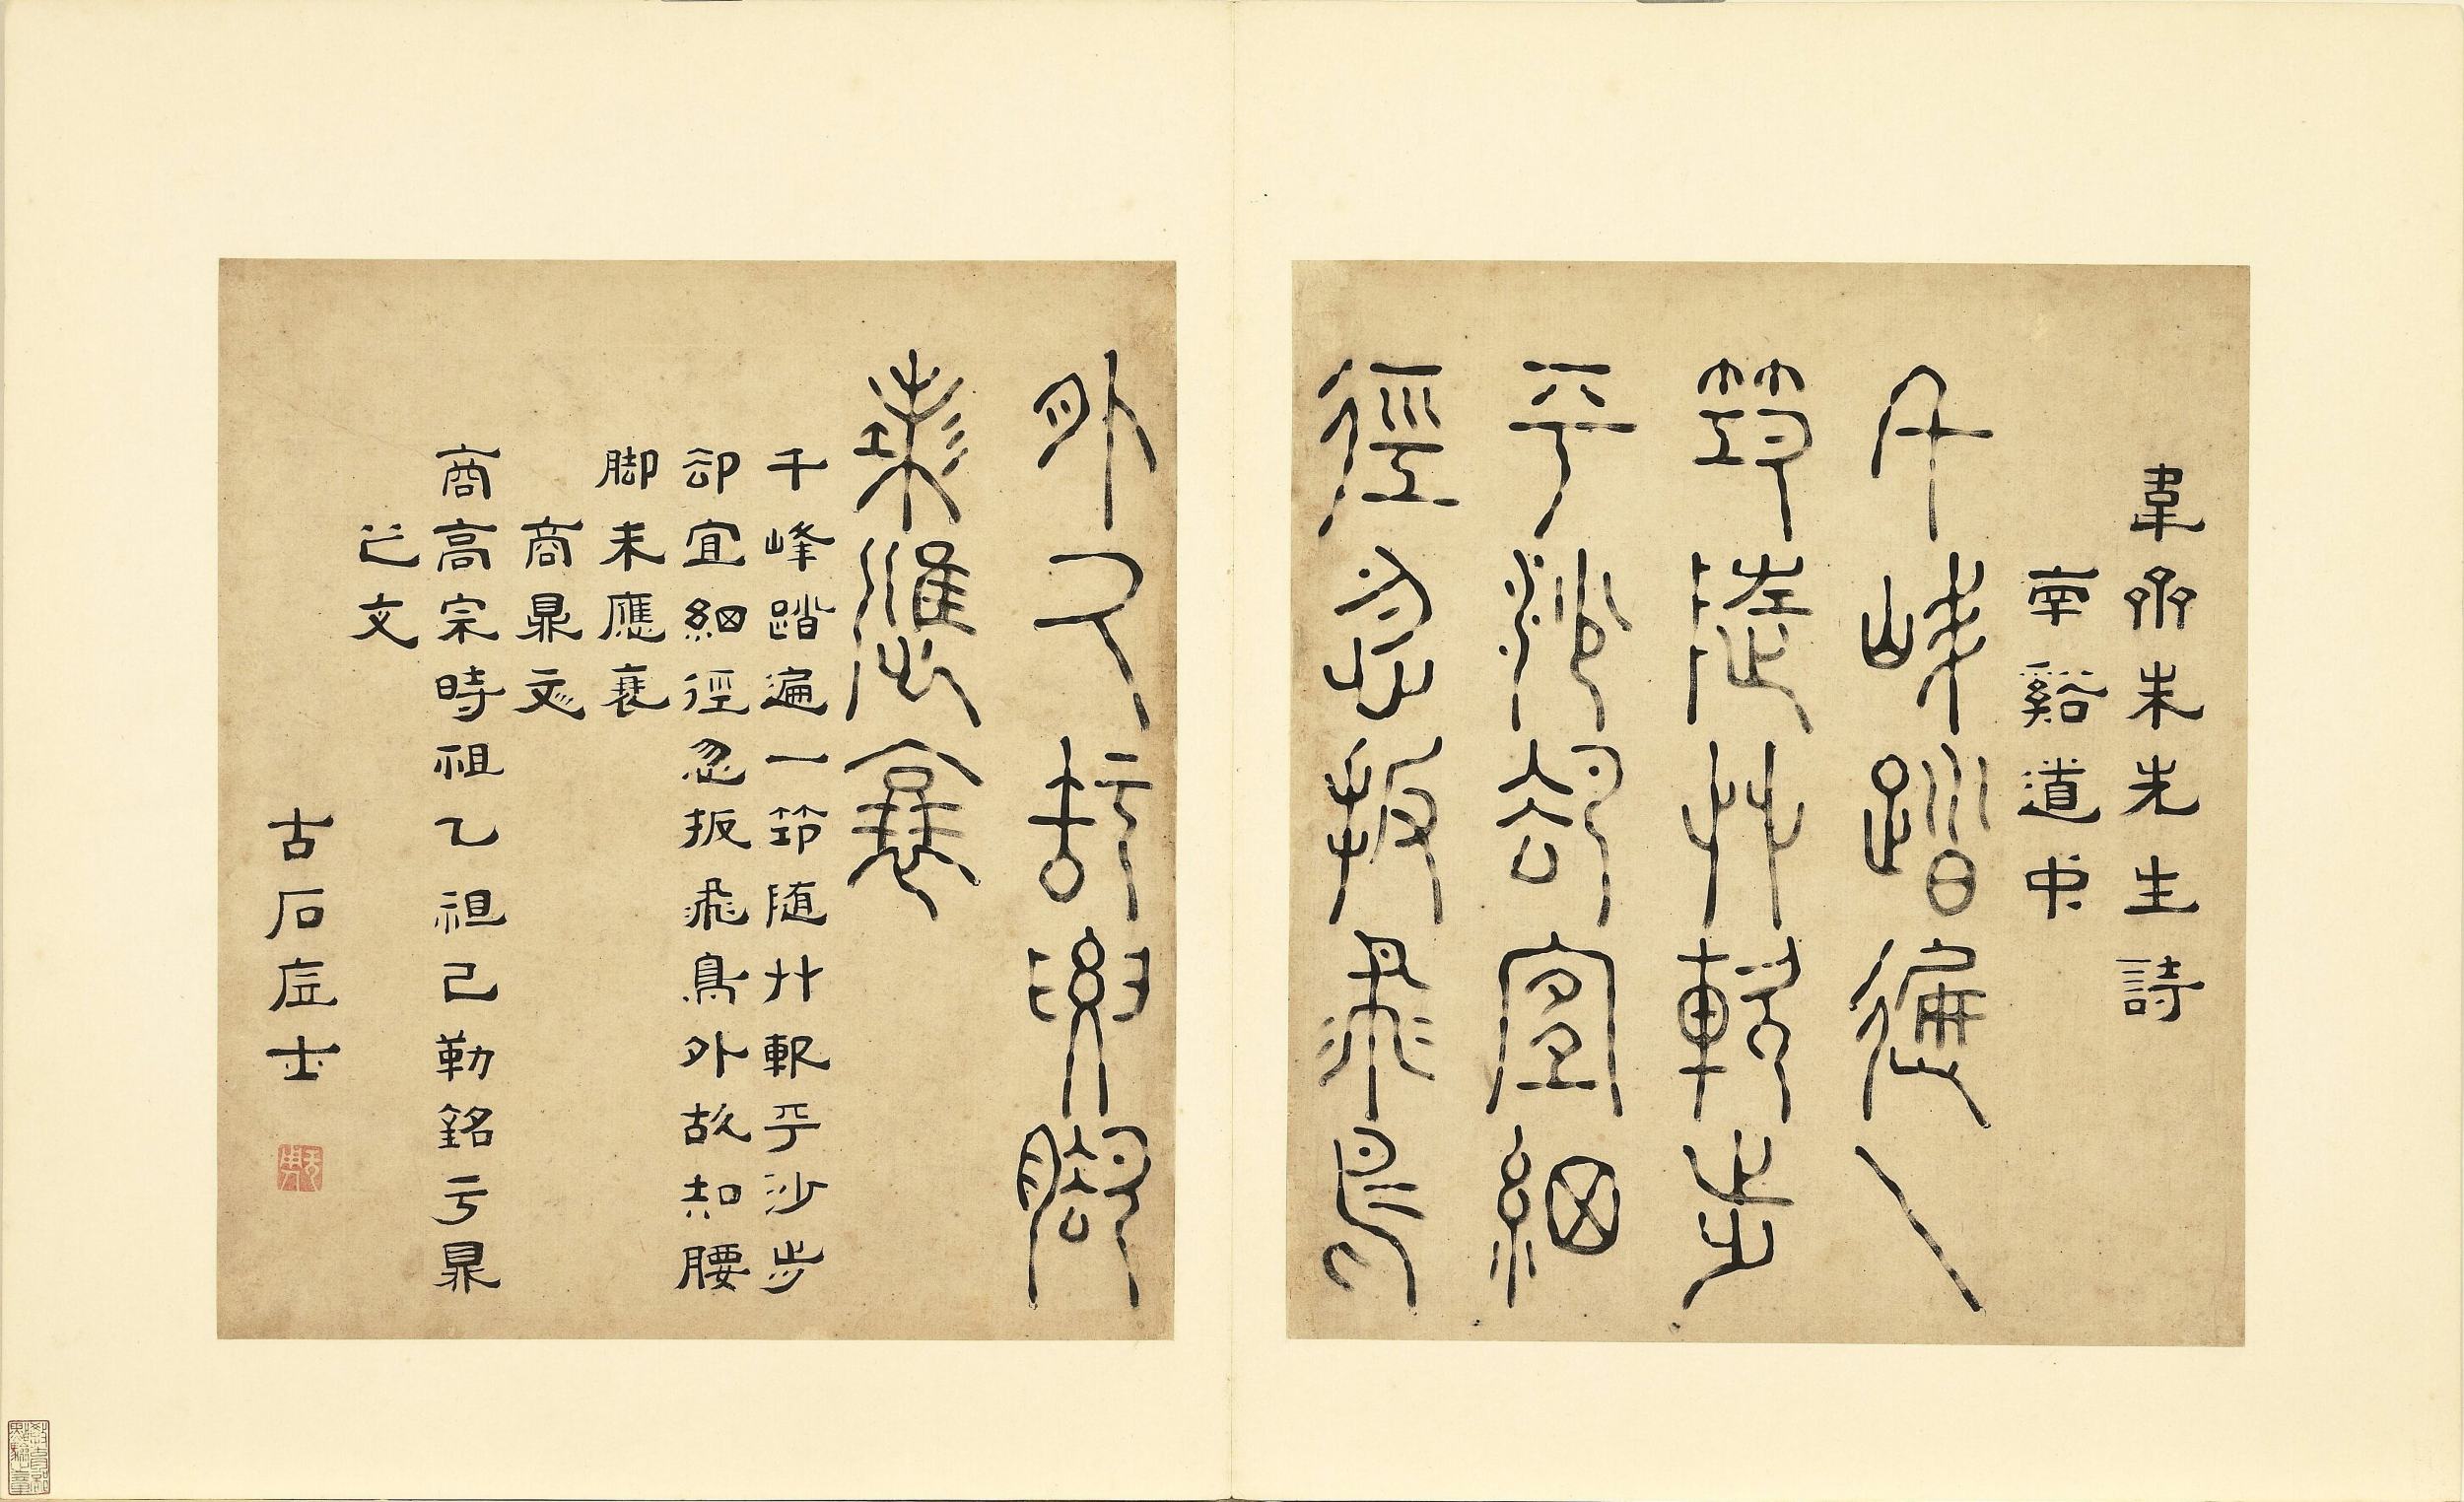 韋齋朱先生詩
南谿道中
千峰踏遍一
筇隨艸軟步
平沙却宜細
徑忽扳飛鳥
外故知腰脚
未應衰
千峰踏遍一筇随艸軟平沙步
却宜細徑忽扳飛鳥外故知腰
脚未應衰
商鼎文
商高宗時祖乙祖己勒銘亏鼎
之文
古石居士